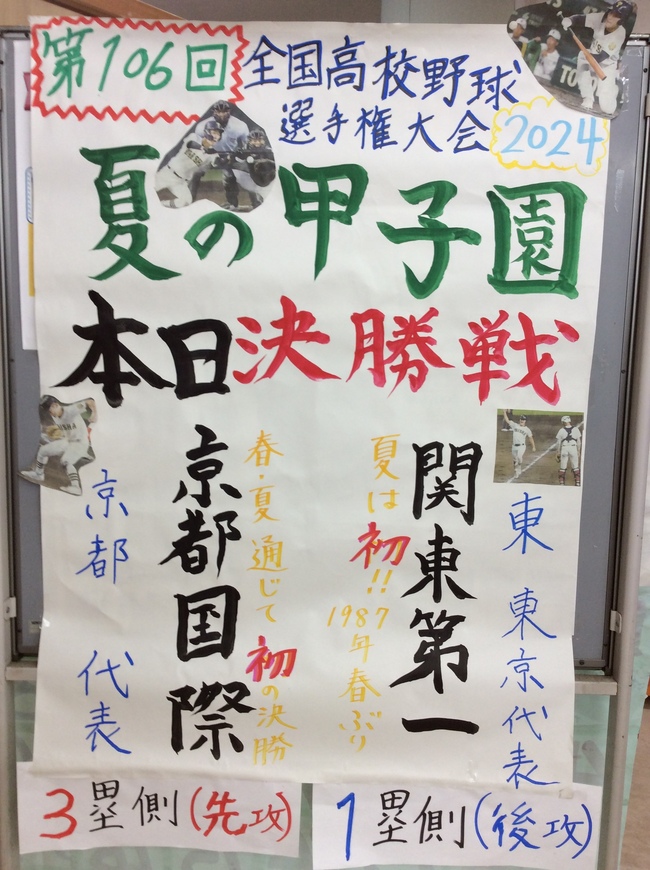 第106回
全国高校野球
選手権大会
2024
夏の甲子園
本日決勝戦
東東京代表
関東第一
夏は初!!
1987年春ぶり
春・夏通じて
初の決勝
京都国際
京都 代表
3塁側(先攻)
1塁側(後攻)